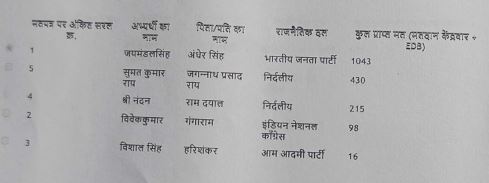 मतपत्र पर अंकित सरल क्र. अभ्यर्थी का नाम पिता/पति का नाम राजनैतिक दल कुल प्राप्त मत (मतदान केंद्रवार + EDB)
1 जयमंडलसिंह अंधेर सिंह भारतीय जनता पार्टी 1043
5 सुमत कुमार राय जगन्नाथ प्रसाद राय निर्दलीय 430
4 श्री नंदन राम दयाल निर्दलीय 215
2 विवेककुमार गंगाराम इंडियन नेशनल काँग्रेस 98
3 विशाल सिंह हरिशंकर आम आदमी पार्टी 16